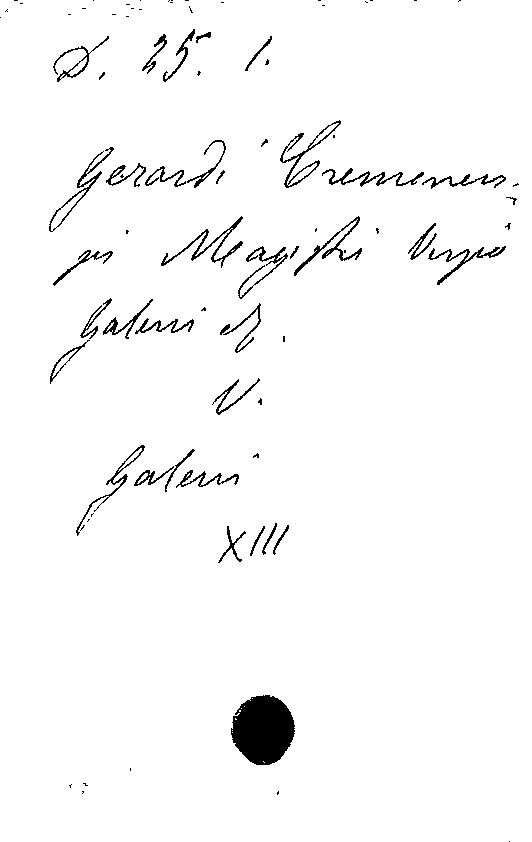 D. 25. 1.
Gerardi Cremonen-
sis Magistri Versio
Galeni &.
V.
Galeni
XIII